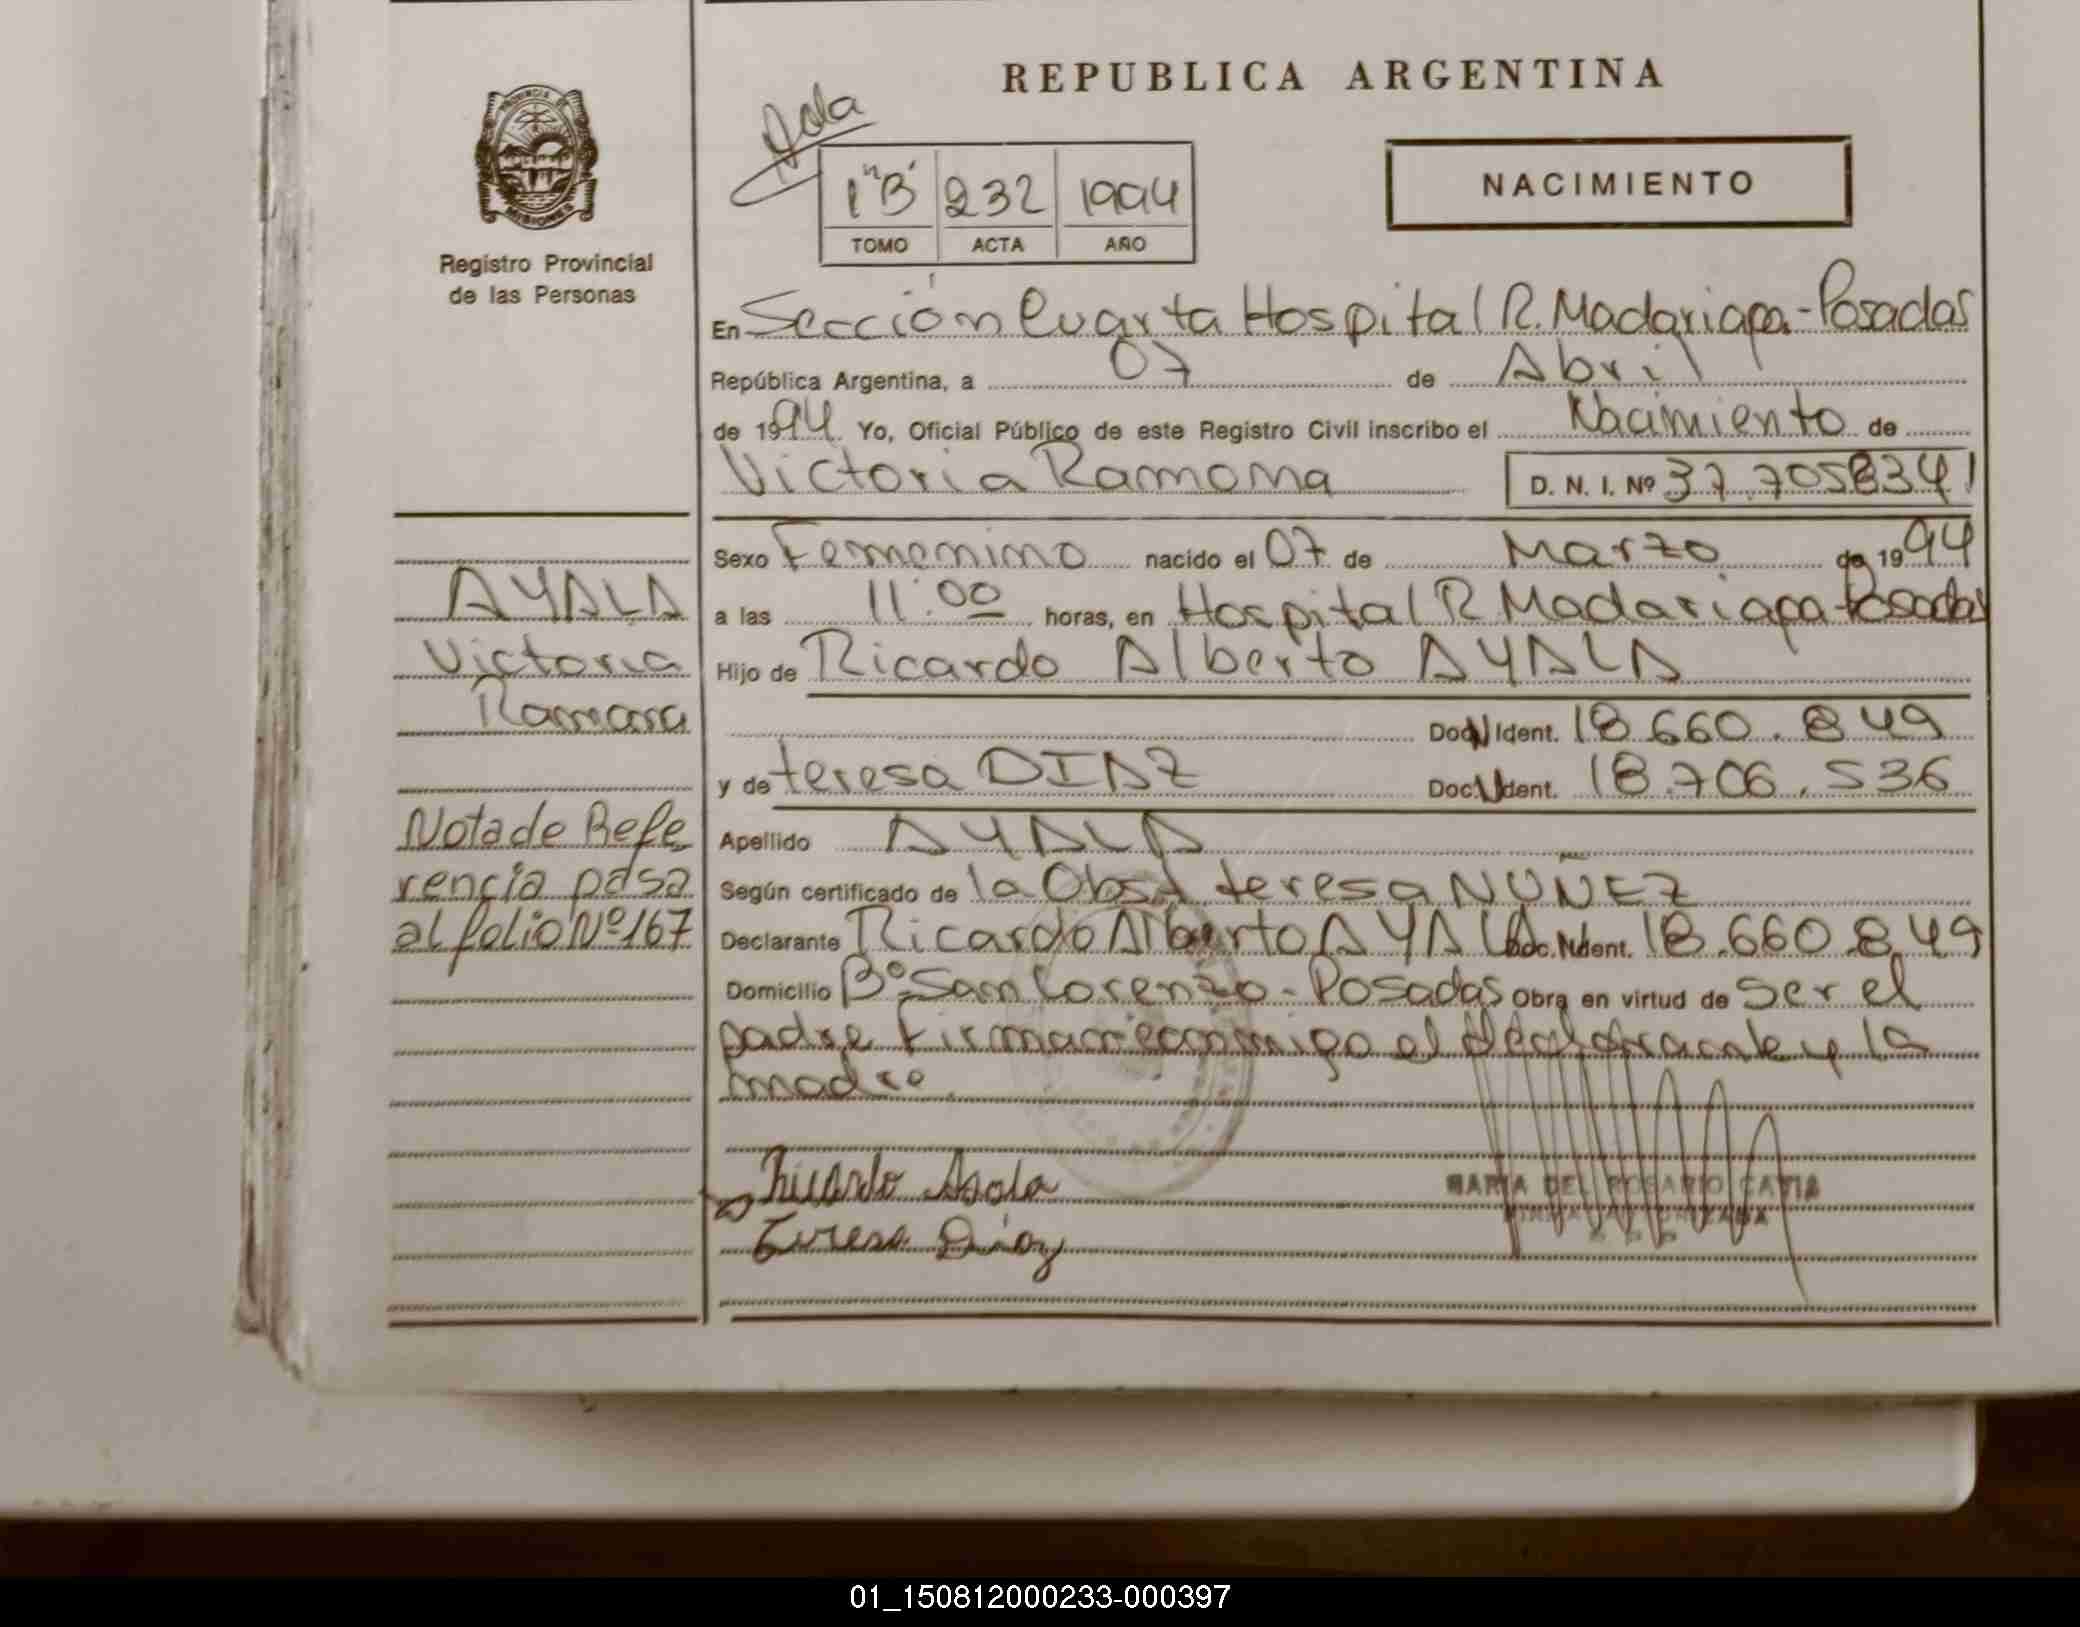 REPUBLICA ARGENTINA
PROVINCIA DE
MISIONES
Registro Provincial
de las Personas
1 "B" 232 1994
TOMO ACTA AÑO
NACIMIENTO
En Sección Cuarta Hospital R. Madariaga-Posadas
República Argentina, a 07 de Abril
de 1994 Yo, Oficial Público de este Registro Civil inscribo el Nacimiento de
Victoria Ramona D. N. I. Nº
Sexo Femenino nacido el 07 de Marzo de 1994
a las 11:00 horas, en Hospital R Madariaga-Posadas
Hijo de Ricardo Alberto AYALA
Doc. Ident. 18.660.849
y de teresa DIAZ Doc. Ident. 18.706.536
Apellido AYALA
Según certificado de la Obst. teresa NUÑEZ
Declarante Ricardo Alberto AYALA Doc. Ident. 18.660.849
Domicilio Bº San Lorenzo - Posadas Obra en virtud de ser el
padre Firman conmigo el declarante y la
madre.
Teresa Diaz
MARIA DEL ROSARIO
AYALA
Victoria
Ramona
Nota de Refe
rencia pasa
al folio Nº 167
01_150812000233-000397